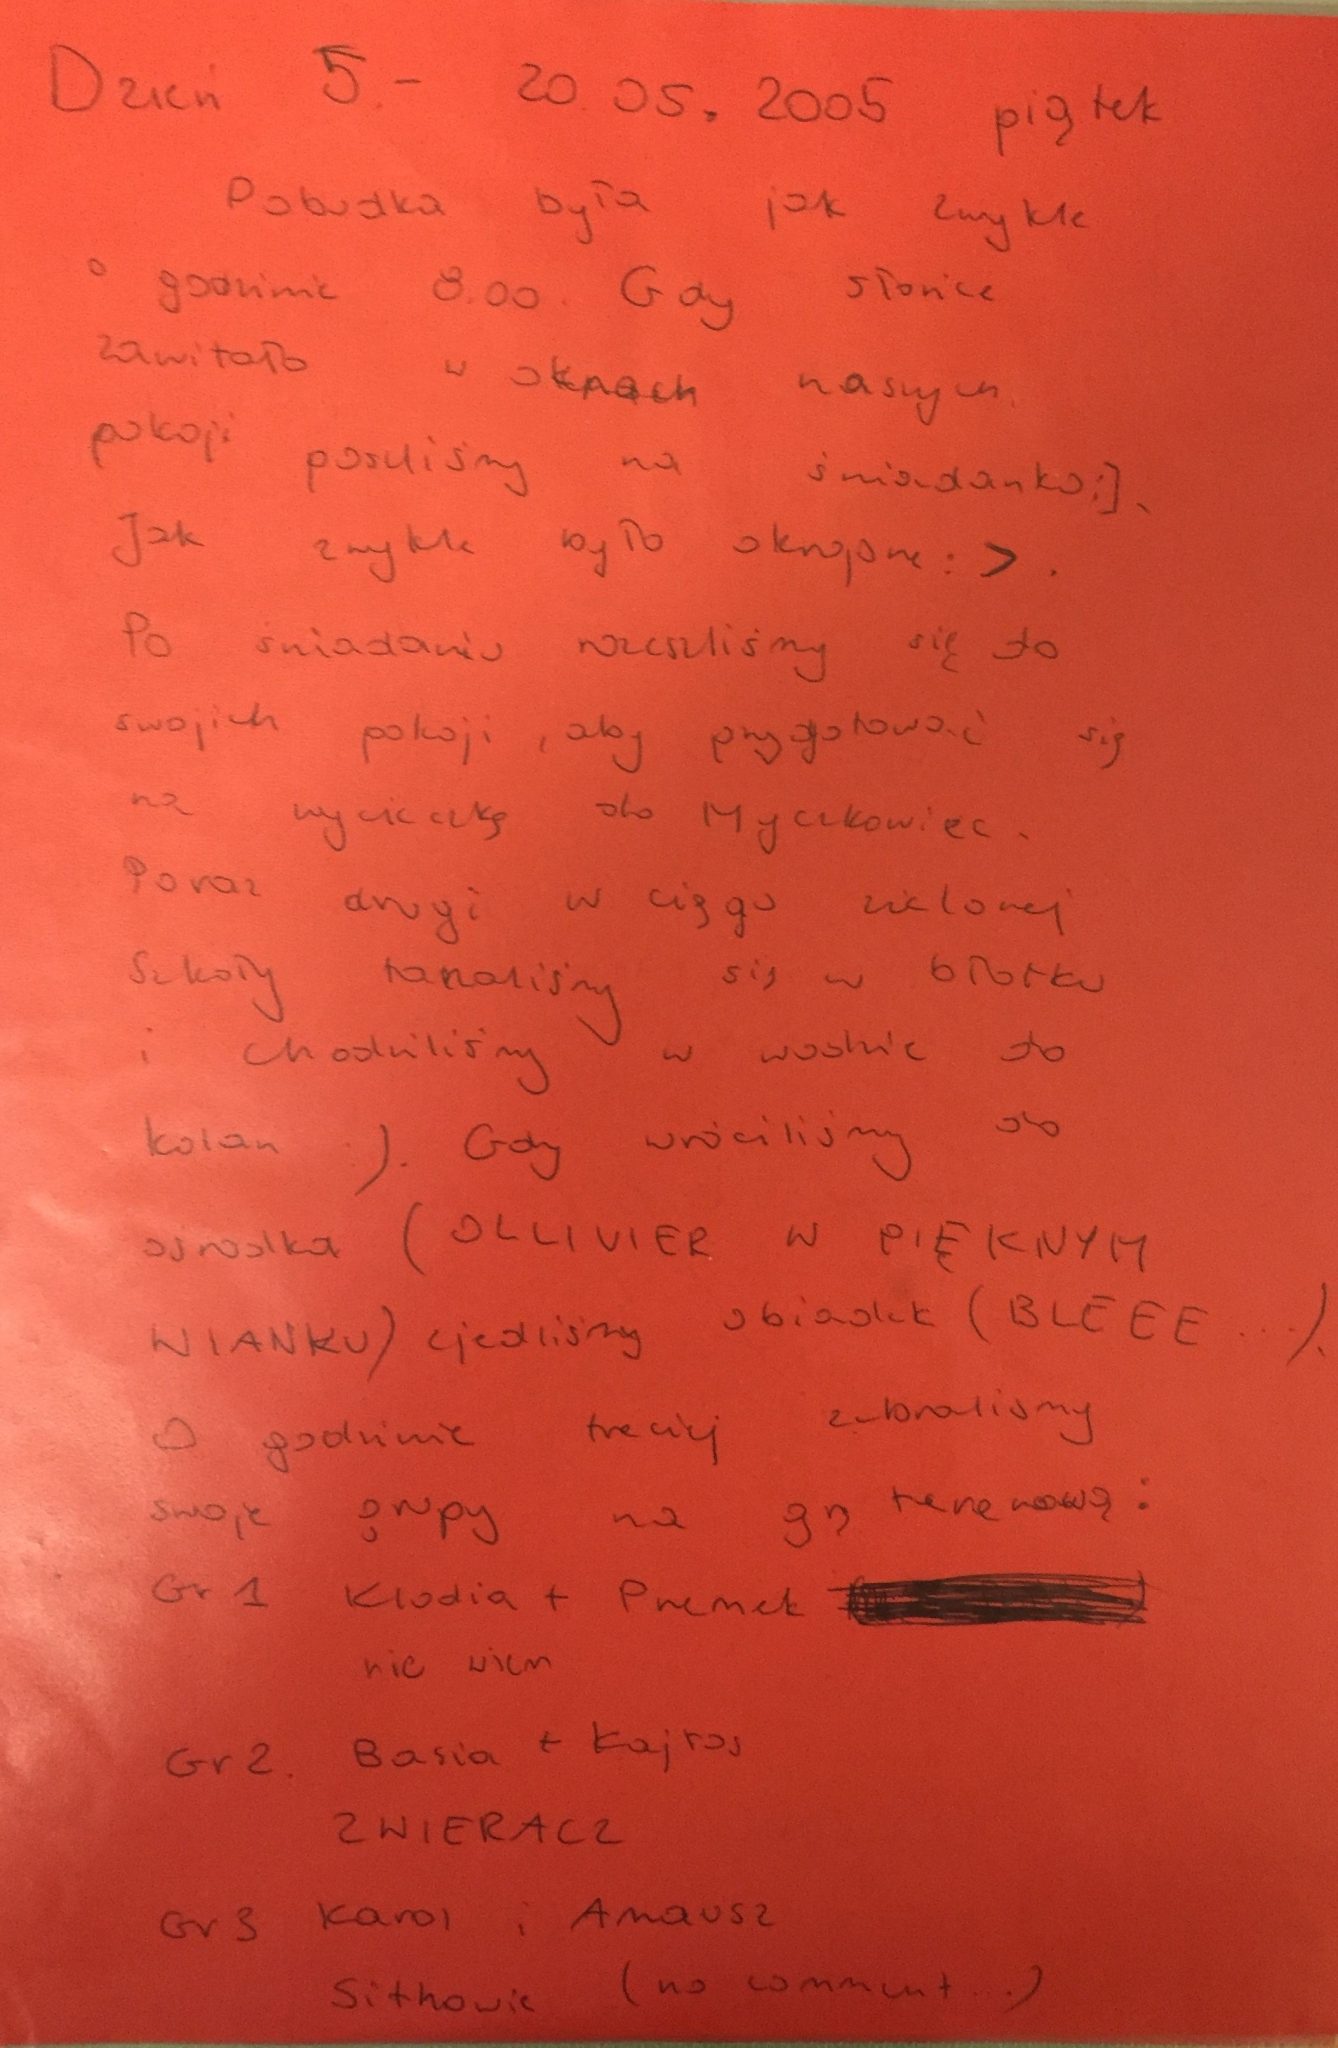 Dzień 5.- 20.05.2005 piątek
Pobudka była jak zwykle
o godzinie 8.00. Gdy słońce
zawitało w oknach naszych
pokoji poszliśmy na śniadanko:].
Jak zwykle było okropne:>.
Po śniadaniu rozeszliśmy się do
swojich pokoji, aby przygotować się
na wycieczkę do Myczkowiec.
Poraz drugi w ciągu zielonej
szkoły taplaliśmy się w błotku
i chodziliśmy w wodzie do
kolan :). Gdy wróciliśmy do
ośrodka (OLLIVIER W PIĘKNYM
WIANKU) zjedliśmy obiadek (BLEEE...).
O godzinie trzeciej zebralismy
swoje grupy na grę terenową:
Gr 1 Klodia + Przemek
nie wiem
Gr 2. Basia + Kajtos
ZWIERACZ
Gr 3 Karol i
Sithowie (no comment...)